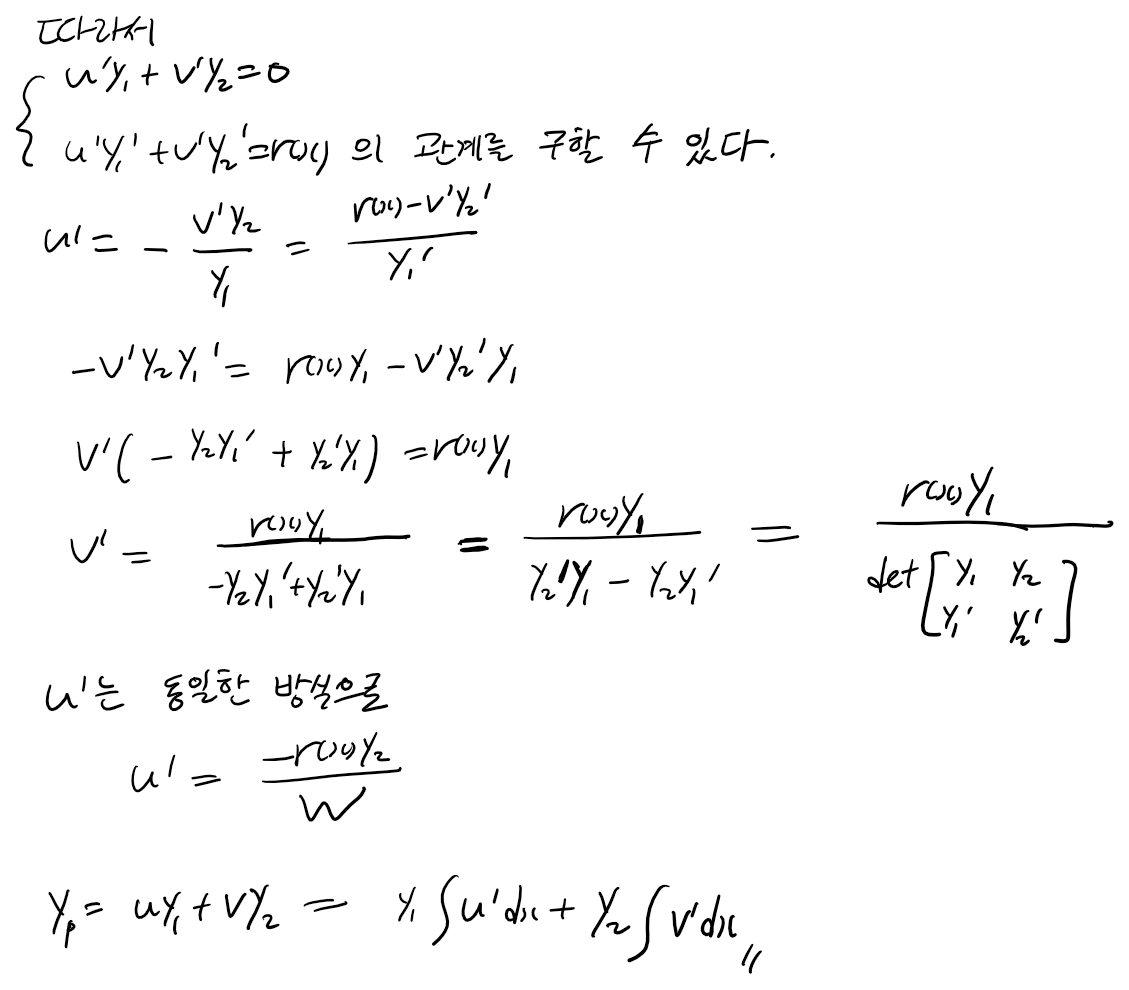 따라서
u'y₁ + v'y₂ = 0
u'y₁' + v'y₂' = r(x) 의 관계를 구할 수 있다.
u' = - v'y₂ / y₁ = (r(x) - v'y₂') / y₁'
-v'y₂y₁' = r(x)y₁ - v'y₂'y₁
v'( - y₂y₁' + y₂'y₁) = r(x)y₁
v' = r(x)y₁ / (-y₂y₁' + y₂'y₁) = r(x)y₁ / (y₂'y₁ - y₂y₁') = r(x)y₁ / det[y₁ y₂; y₁' y₂']
u'는 동일한 방식으로
u' = -r(x)y₂ / W
yₚ = uy₁ + vy₂ = y₁∫u'dx + y₂∫v'dx〃